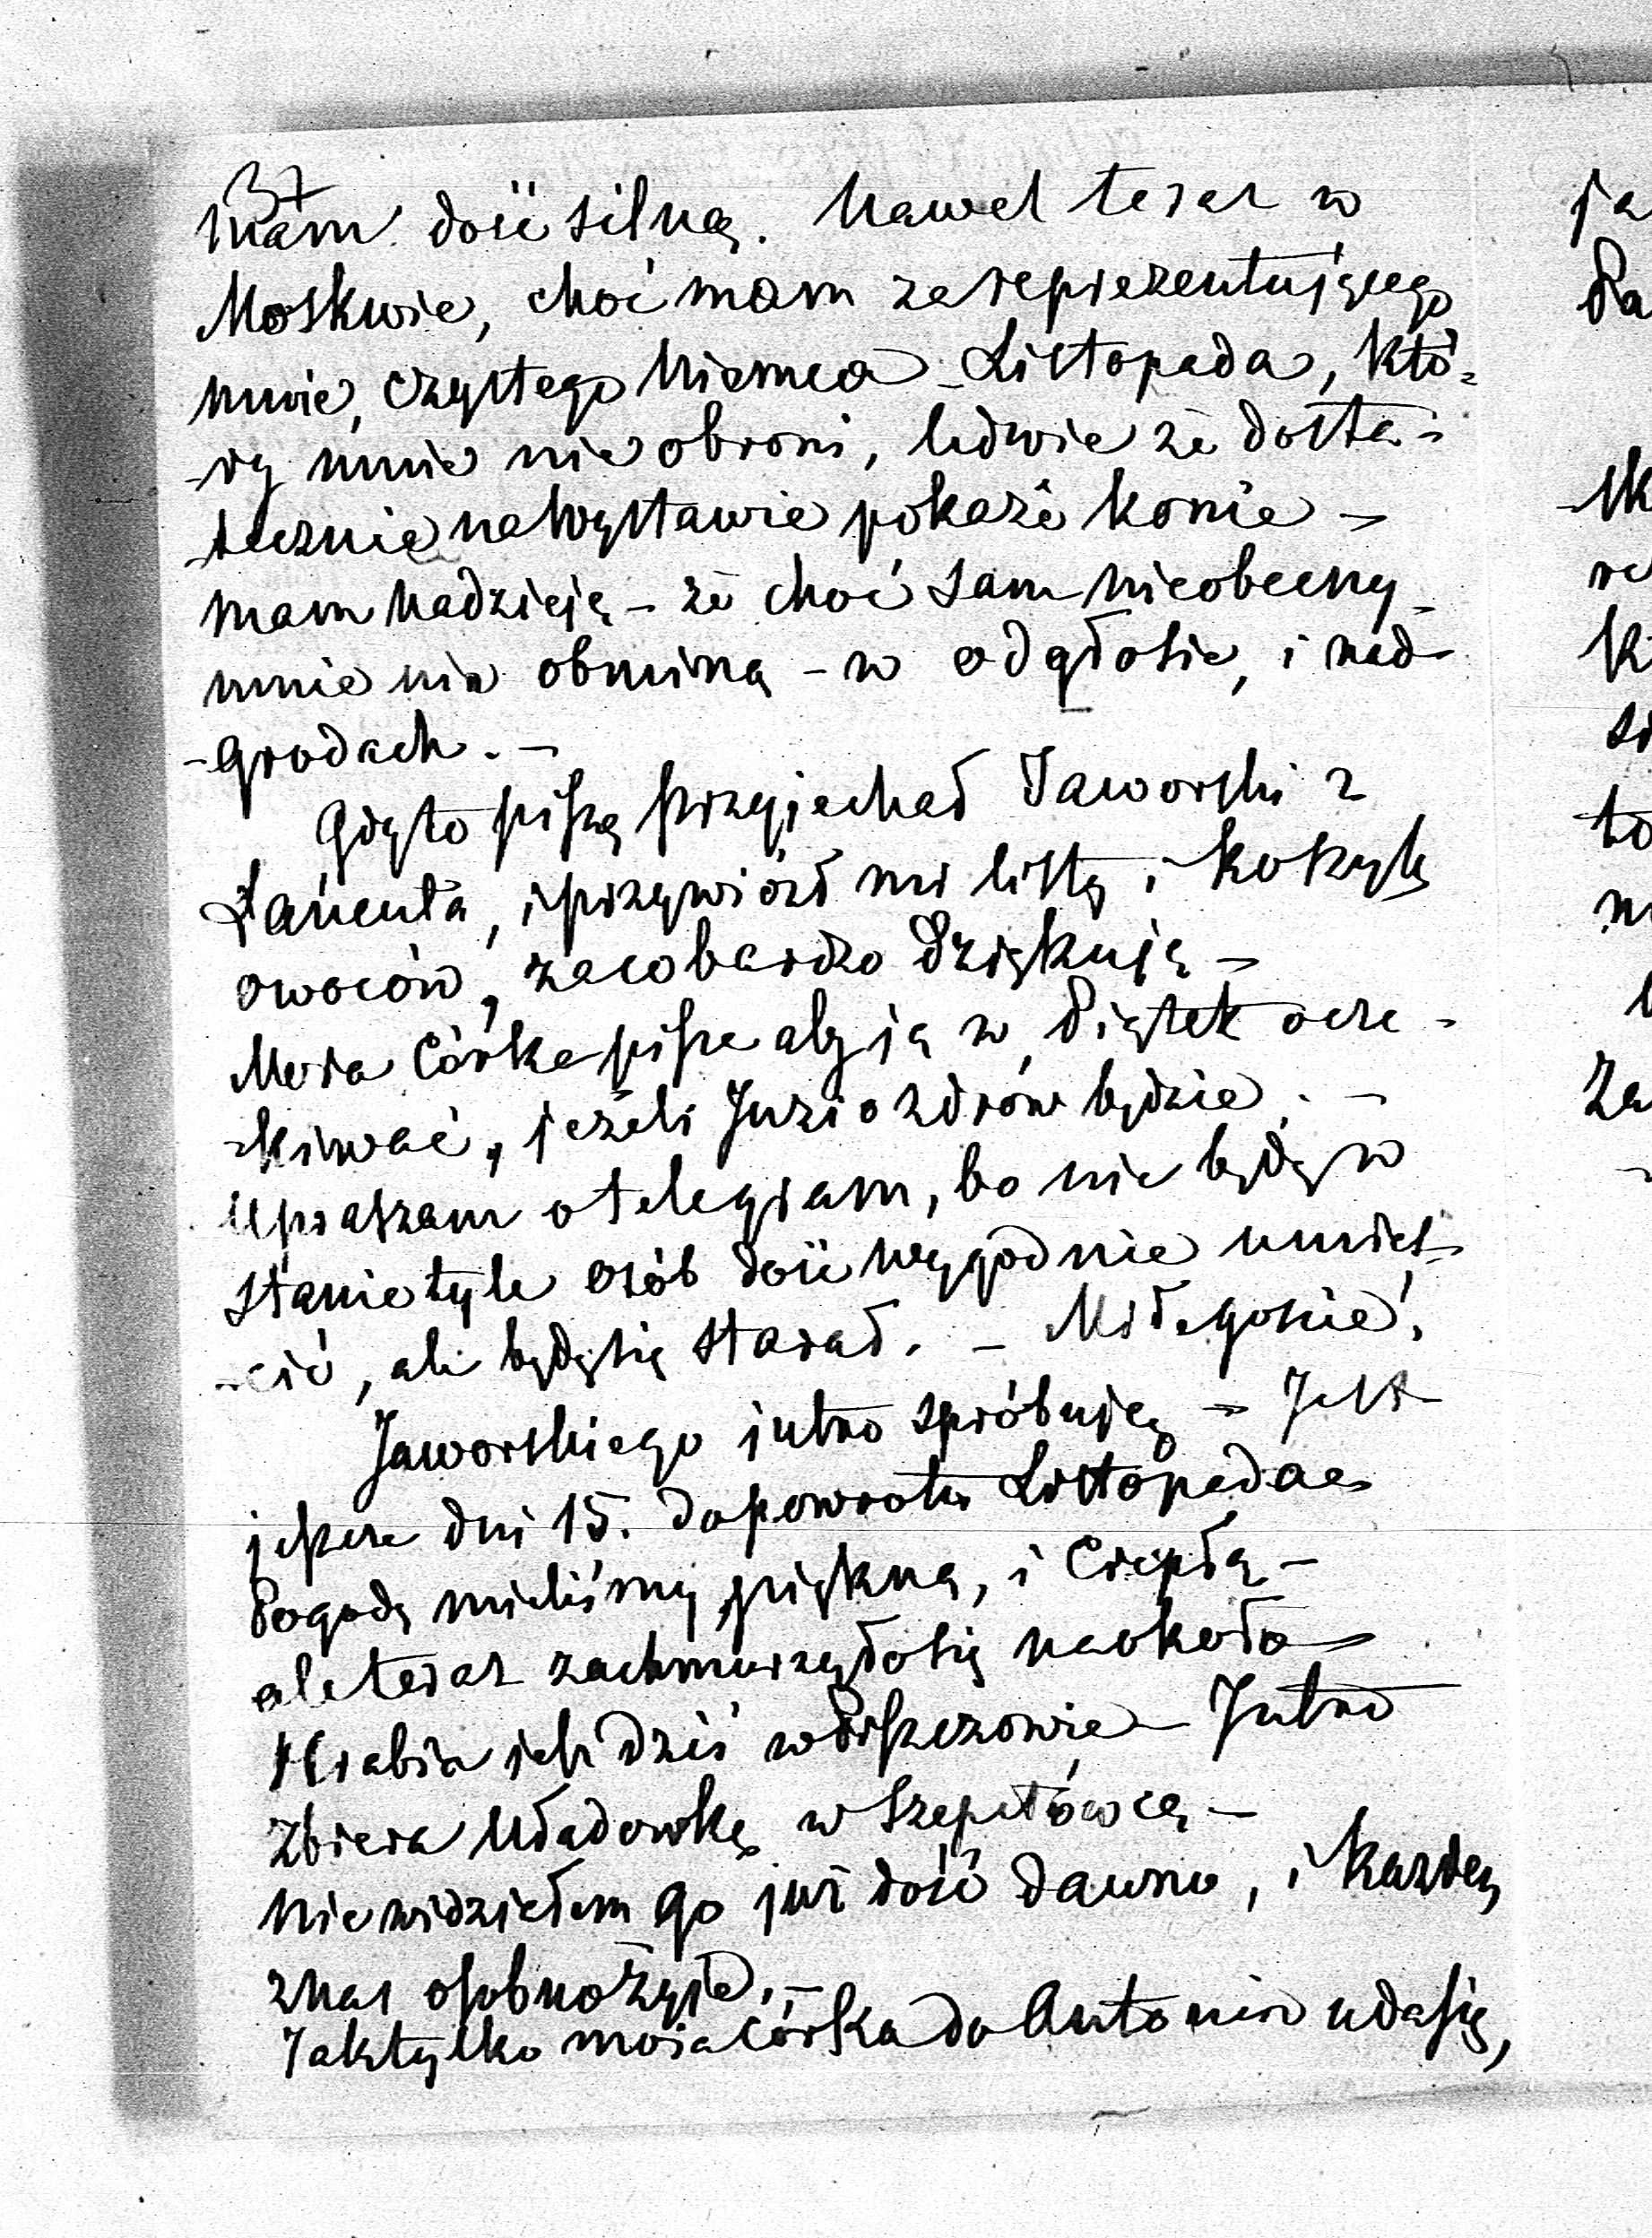 37
mam dość silną. Nawet teraz w
Moskwie, choć mam zareprezentującego
mnie, czystego Niemca - Listopada, któ-
-ry mnie nie obroni, ledwie że dosta-
-tecznie na Wystawie pokaże konie -
mam Nadzieję - że choć sam nieobecny -
mnie nie obminą - w odgłosie, i nad-
-grodach. -
Gdy to piszę przyjechał Jaworski z
Łańcuta, i przywiózł mi listy i koszyk
owoców, zaco bardzo dziękuję -
Moia Córka pisze aby ją w Piątek ocze-
-kiwać, jeżeli Juzio zdrów będzie. -
Upraszam o telegram, bo nie będę w
stanie tyle osób dość wygodnie umieś-
-cić, ale będę się starał. -
Jaworskiego jutro spróbuję - Jest
jeszcze dni 15. do powrotu Listopada
Pogodę mieliśmy piękną, i Ciepłą -
ale teraz zachmurzyło się naokoło
Hrabia jest dziś w Jutro
Zbiera Uładowkę w Szepetówcę -
nie widziałem go już dość dawno, i każdy
z nas osobno żyje. -
Jak tylko moia córka do Antonin uda się,